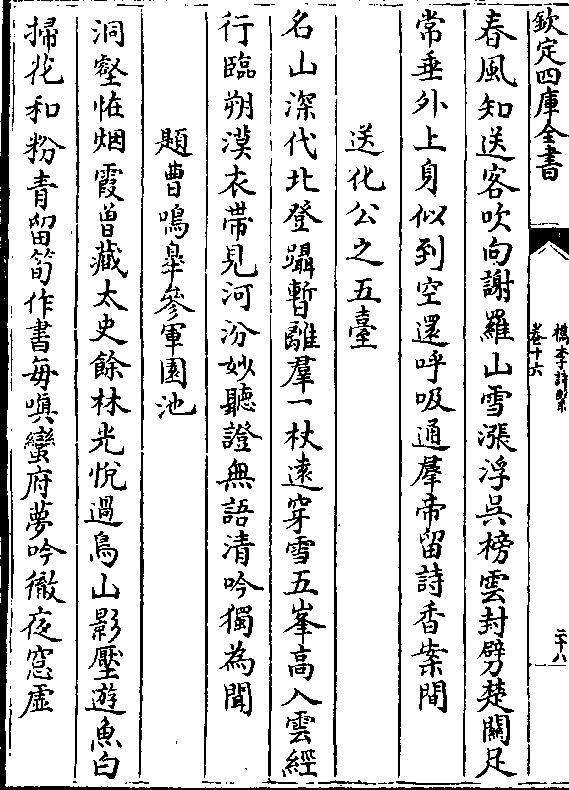 欽定四庫全書
檇李詩繫
卷十六
二十八
春風知送客吹向謝羅山雪漲浮吳榜雲封劈楚關足
常垂外上身似到空還呼吸通羣帝留詩香案間
送化公之五臺
名山深代北登躡暫離羣一杖遠穿雪五峯高入雲經
行臨朔漠衣帶見河汾妙聽證無語清吟獨為聞
題曹鳴臯參軍園池
洞壑恠烟霞曾藏太史餘林光悅過鳥山影壓遊魚白
掃花和粉青留筍作書每嗔蠻府夢吟徹夜窓虛